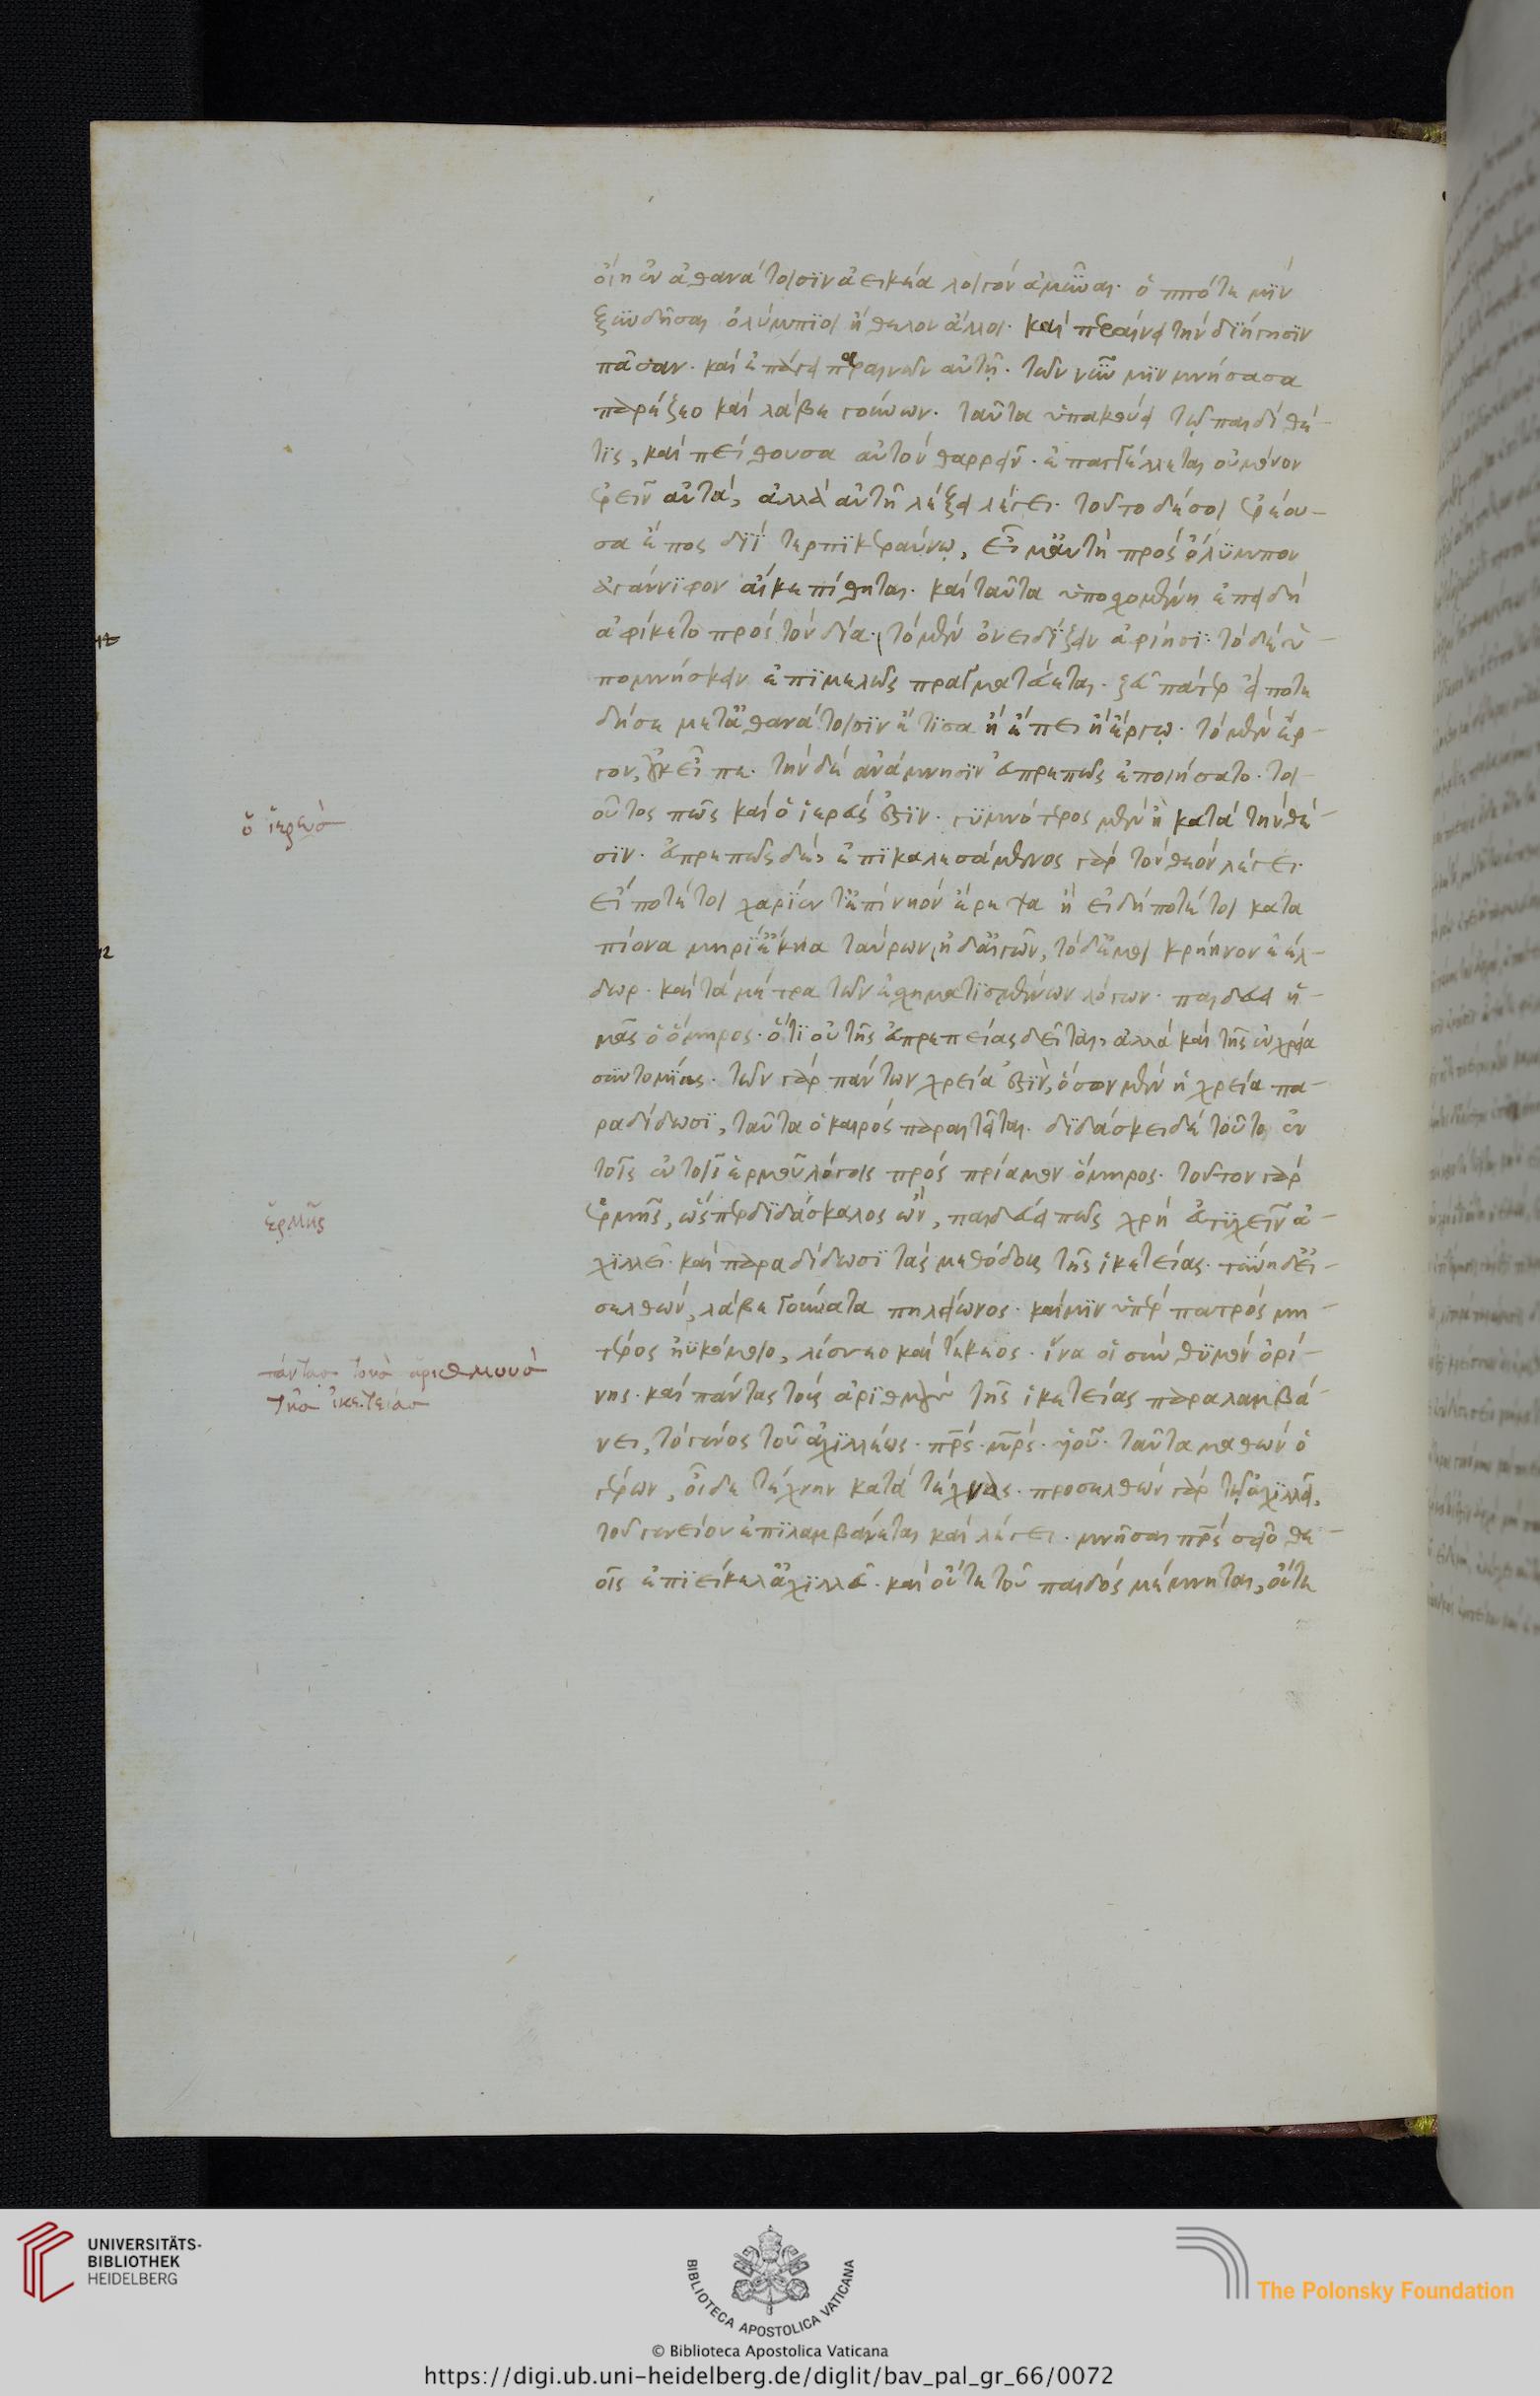 οἴη ἐν ἀθανάτοισιν ἀεικέα λοιγὸν ἀμῦναι. ὁππότε μιν
ξυνδῆσαι ὀλύμπιοι ἤθελον ἄλλοι. καὶ περαίνει τὴν διήγησιν
πᾶσαν. καὶ ἐπάγει παραινῶν αὐτῇ. τῶν νῦν μιν μνήσασα
παρέζεο καὶ λάβε γούνων. ταῦτα ὑπακούει τῷ παιδὶ θέ-
τις, καὶ πείθουσα αὐτὸν θαρρεῖν. ἐπαγγέλλεται οὐ μόνον
ἐρεῖν αὐτά, ἀλλὰ αὐτῇ λέξει λέγει. τοῦτο δέ σοι ἐρέου-
σα ἔπος διῒ τερπικεραύνῳ, εἶμ' αὐτὴ πρὸς ὄλυμπον
ἀγάννιφον αἴκε πίθηται. καὶ ταῦτα ὑποσχομένη ἐπειδὴ
ἀφίκετο πρὸς τὸν δία. τὸ μὲν ὀνειδίζειν ἀφίησι. τὸ δὲ ὑ-
πομνήσκειν ἐπιμελῶς πραγματεύεται. ζεῦ πάτερ εἴποτε
δή σε μετ' ἀθανάτοισιν ἔτισα ἢ ἔπει ἢ ἔργῳ. τὸ μὲν ἔρ-
γον, οὐκ εἶπε. τὴν δὲ ἀνάμνησιν εὐπρεπῶς ἐποιήσατο. τοι-
οῦτος πως καὶ ὁ ἱερεύς ἐστιν. γυμνότερος μὲν ἢ κατὰ τὴν θέ-
σιν. εὐπρεπῶς δέ, ἐπικαλεσάμενος γὰρ τὸν θεὸν λέγει.
εἴ ποτέ τοι χαρίεντ' ἐπὶ νηὸν ἔρεψα ἢ εἰ δή ποτέ τοι κατα
πίονα μηρί' ἔκηα ταύρων, ἠδ' αἰγῶν, τόδε μοι κρήηνον ἐέλ-
δωρ. καὶ τὰ μέτρα τῶν ἐσχηματισμένων λόγων. παιδεύει ἡ-
μᾶς ὁ ὅμηρος. ὅτι οὐ τῆς εὐπρεπείας δεῖται, ἀλλὰ καὶ τῆς ἐν χρεία
συντομίας. τῶν γὰρ πάντων χρεία ἐστὶν, ὅσων μὲν ἡ χρεία πα-
ραδίδωσι, ταῦτα ὁ καιρὸς παραιτεῖται. διδάσκει δὲ τοῦτο ἐν
τοῖς ἐν τοῖς ἑρμοῦ λόγοις πρὸς πρίαμον ὅμηρος. τοῦτον γὰρ
ἑρμῆς, ὥσπερ διδάσκαλος ὢν, παιδεύει πῶς χρὴ ἐντυχεῖν ἀ-
χιλλεῖ. καὶ παραδίδωσι τὰς μεθόδους τῆς ἱκετείας. τύνη δ' εἰ-
σελθὼν, λάβε γούνατα πηλείωνος. καί μιν ὑπὲρ πατρὸς μη-
τέρος ἠϋκόμοιο, λίσσεο καὶ τέκεος. ἵνα οἱ σὺν θυμὸν ὀρί-
νῃς. καὶ πάντας τοὺς ἀριθμοὺς τῆς ἱκετείας παραλαμβά-
νει, τὸ γένος τοῦ ἀχιλλέως. πρς. μρς. υἱοῦ. ταῦτα μαθὼν ὁ
γέρων, οἶδε τέχνην κατὰ τέχνας. προσελθὼν γὰρ τῷ ἀχιλλεῖ,
τοῦ γενείου ἐπιλαμβάνεται καὶ λέγει. μνῆσαι πρς σεῖο θε-
οῖς ἐπιείκελ' ἀχιλλεῦ. καὶ οὔτε τοῦ παιδὸς μέμνηται, οὔτε
ὁ ἱερεὺσ
ἑρμῆς
πάντασ τοὺσ ἀριθμουσ
τῆσ ἱκετείασ
UNIVERSITÄTS-
BIBLIOTHEK
HEIDELBERG
BIBLIOTECA APOSTOLICA VATICANA
The Polonsky Foundation
© Biblioteca Apostolica Vaticana
https://digi.ub.uni-heidelberg.de/diglit/bav_pal_gr_66/0072